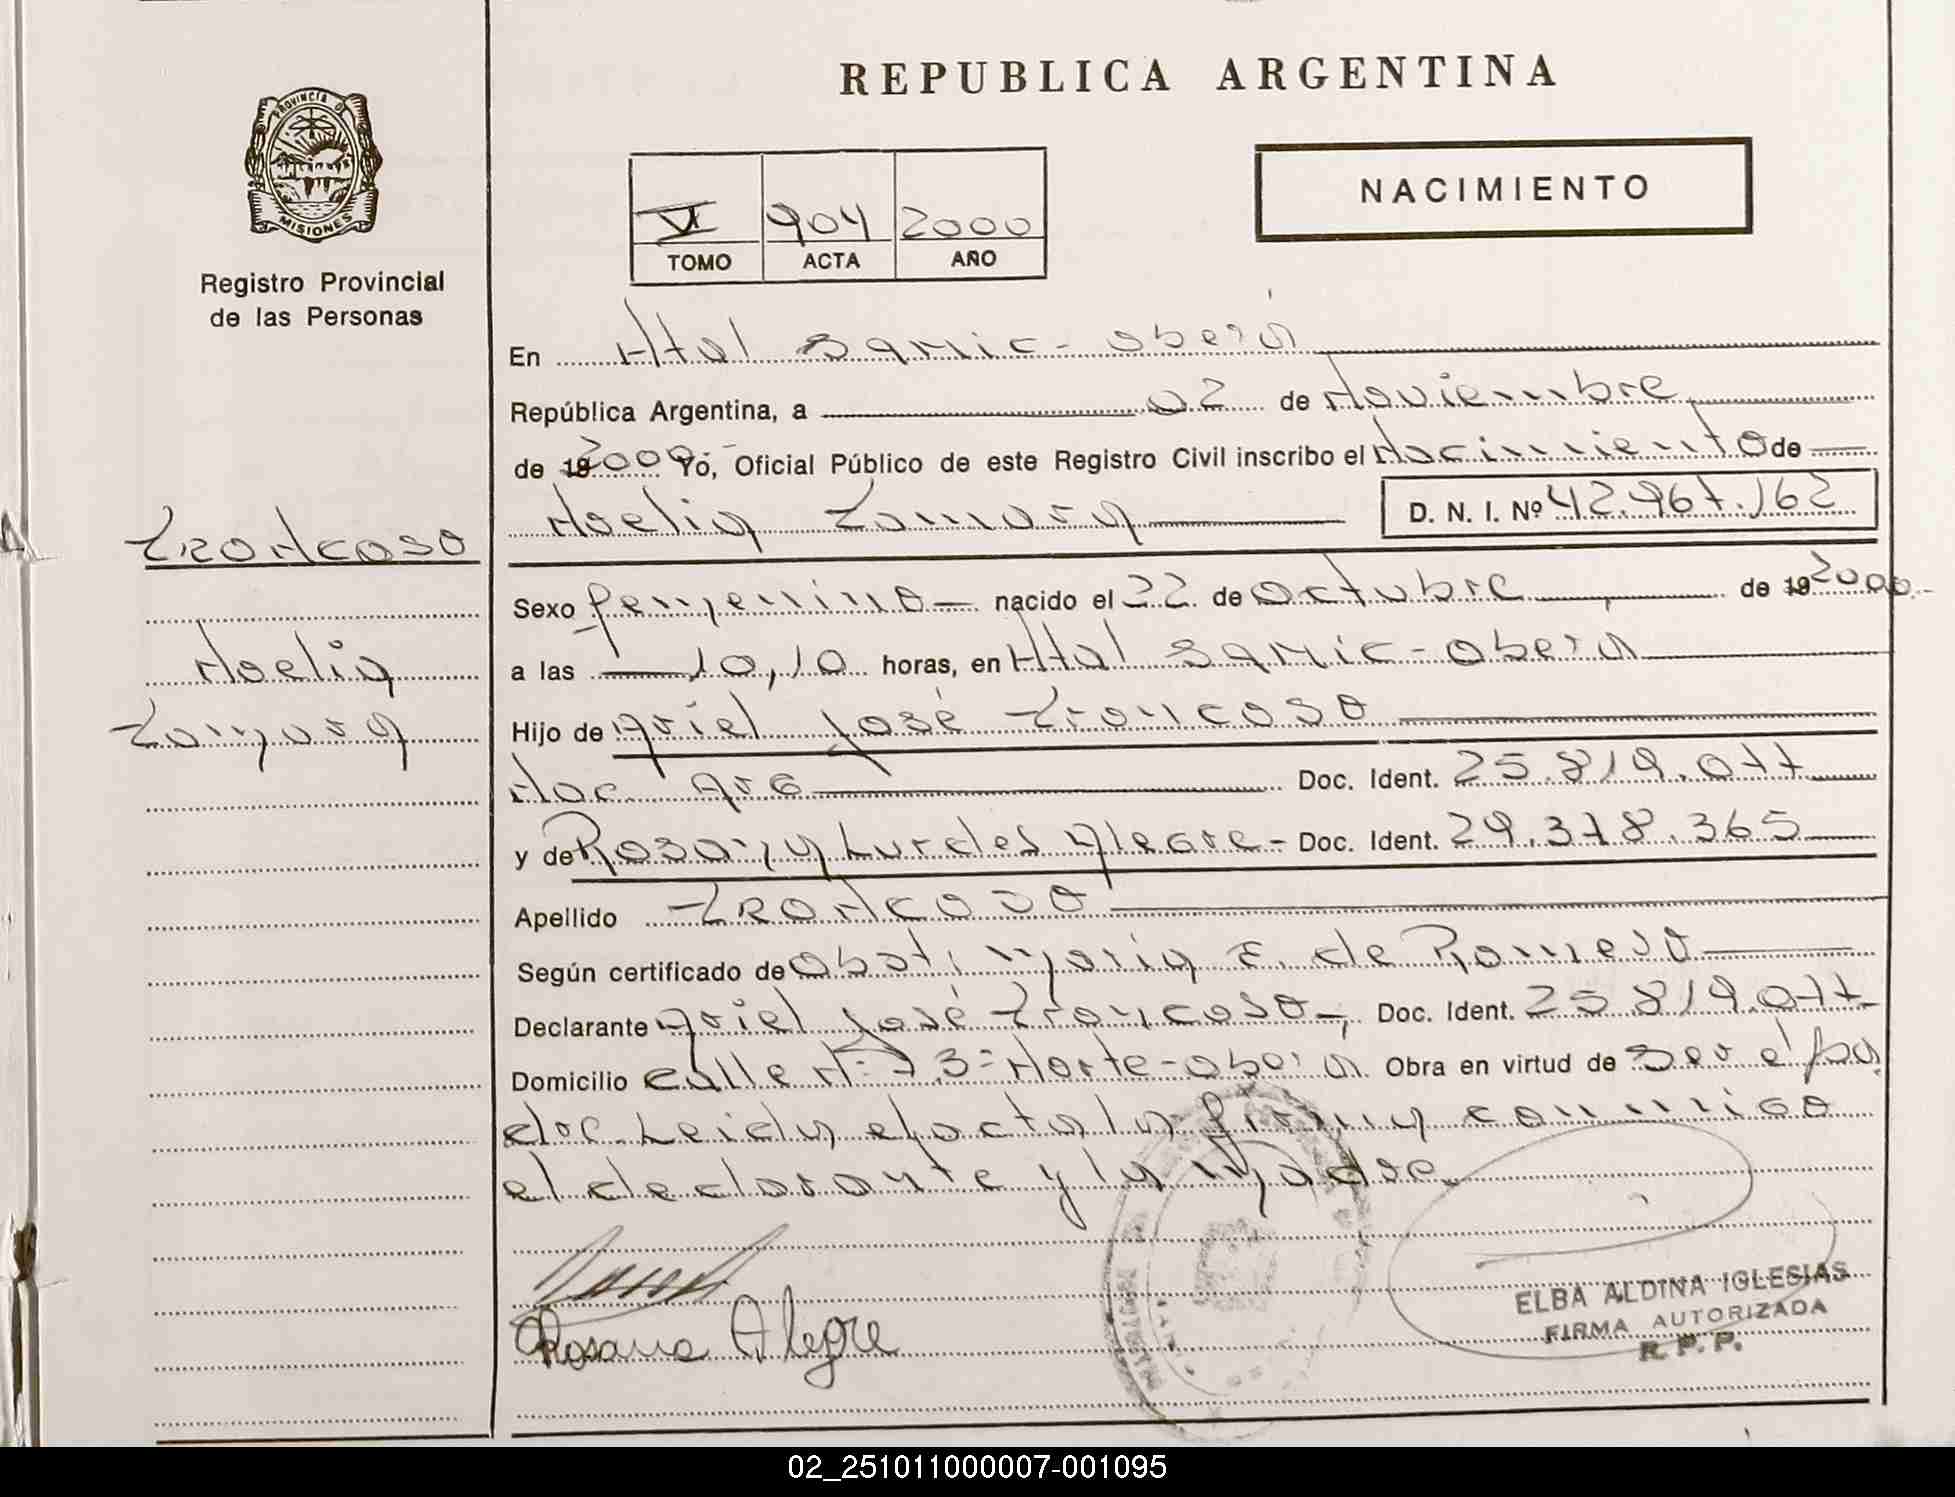 REPUBLICA ARGENTINA
PROVINCIA DE
MISIONES
Registro Provincial
de las Personas
VI 904 2000
TOMO ACTA AÑO
NACIMIENTO
En Htal Samic - Oberá
República Argentina, a 02 de Noviembre
de 19 2000.- Yo, Oficial Público de este Registro Civil inscribo el Nacimiento de
Noelia Tamara
D. N. I. Nº 42.967.162
Troncoso
Noelia
Tamara
Sexo femenino nacido el 22 de Octubre de 19 2000.-
a las 10,10 horas, en Htal Samic - Oberá
Hijo de Ariel José Troncoso
Nac. Arg Doc. Ident. 25.819.077
y de Rosana Lurdes Alegre - Doc. Ident. 29.378.365
Apellido Troncoso
Según certificado de Obst. María E. de Romero
Declarante Ariel José Troncoso Doc. Ident. 25.819.077
Domicilio Calle Nº 73 - Norte - Oberá Obra en virtud de ser el pa
dre. Leida el acta la firma conmigo
el declarante y la madre.
Rosana Alegre
ELBA ALDINA IGLESIAS
FIRMA AUTORIZADA
R. P. P.
02_251011000007-001095